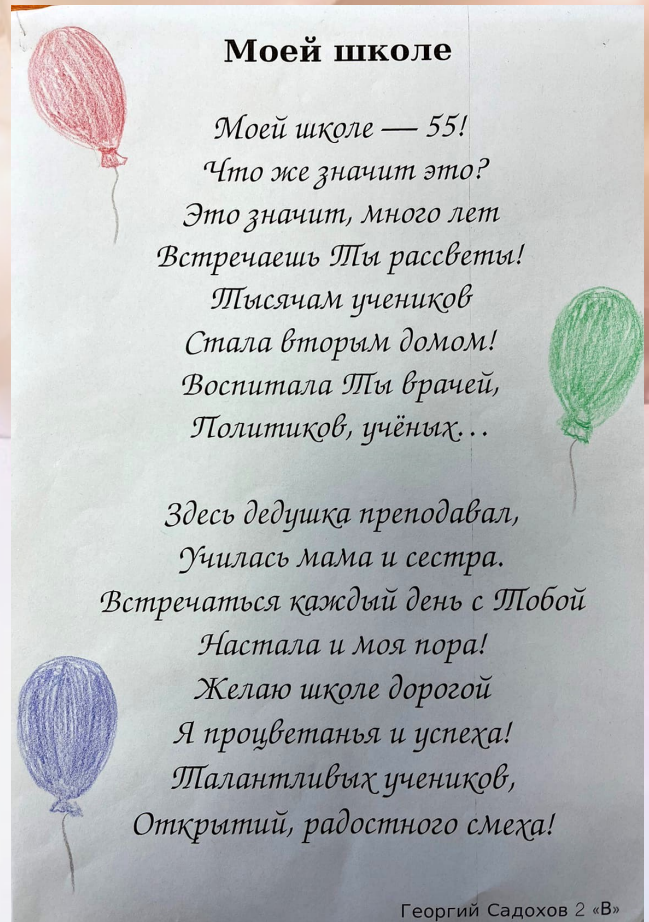 Моей школе
Моей школе — 55!
Что же значит это?
Это значит, много лет
Встречаешь Ты рассветы!
Тысячам учеников
Стала вторым домом!
Воспитала Ты врачей,
Политиков, учёных...
Здесь дедушка преподавал,
Училась мама и сестра.
Встречаться каждый день с Тобой
Настала и моя пора!
Желаю школе дорогой
Я процветанья и успеха!
Талантливых учеников,
Открытий, радостного смеха!
Георгий Садохов 2 «В»